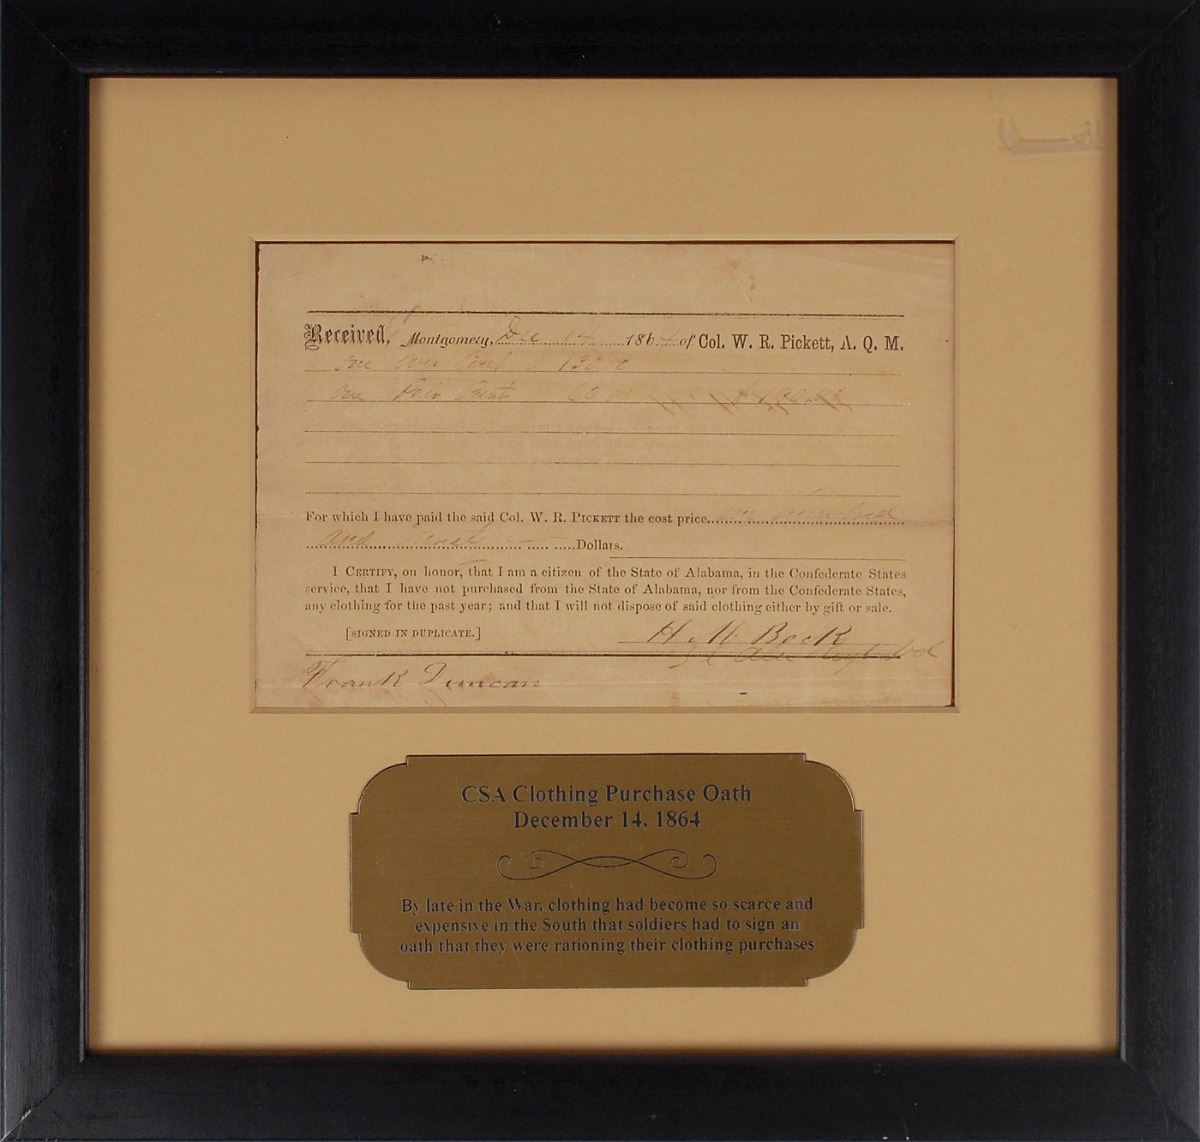 Received, Montgomery, Dec 14 1864 of Col. W. R. Pickett, A. Q. M.
one over 130 00
one Pair Pants 60 00
For which I have paid the said Col. W. R. PICKETT the cost price one hundred
and Dollars.
I CERTIFY, on honor, that I am a citizen of the State of Alabama, in the Confederate States
service, that I have not purchased from the State of Alabama, nor from the Confederate States,
any clothing for the past year; and that I will not dispose of said clothing either by gift or sale.
[SIGNED IN DUPLICATE.] H. M. Beck
Frank Duncan
CSA Clothing Purchase Oath
December 14, 1864
By late in the War, clothing had become so scarce and
expensive in the South that soldiers had to sign an
oath that they were rationing their clothing purchases